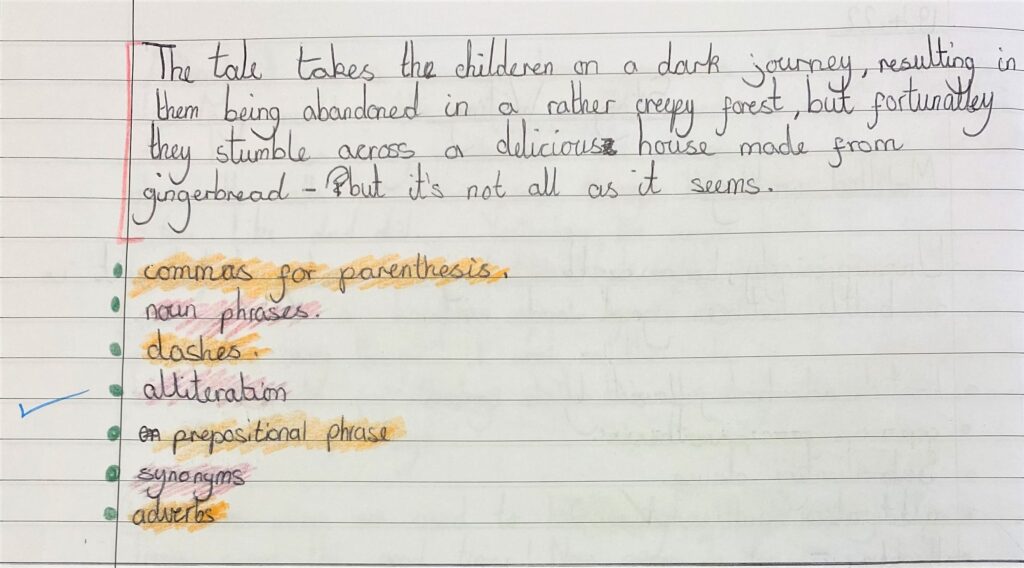 The tale takes the childeren on a dark journey, resulting in
them being abandoned in a rather creepy forest, but fortunatley
they stumble across a delicious house made from
gingerbread - but it's not all as it seems.
commas for parenthesis.
noun phrases.
dashes.
alliteration
prepositional phrase
synonyms
adverbs